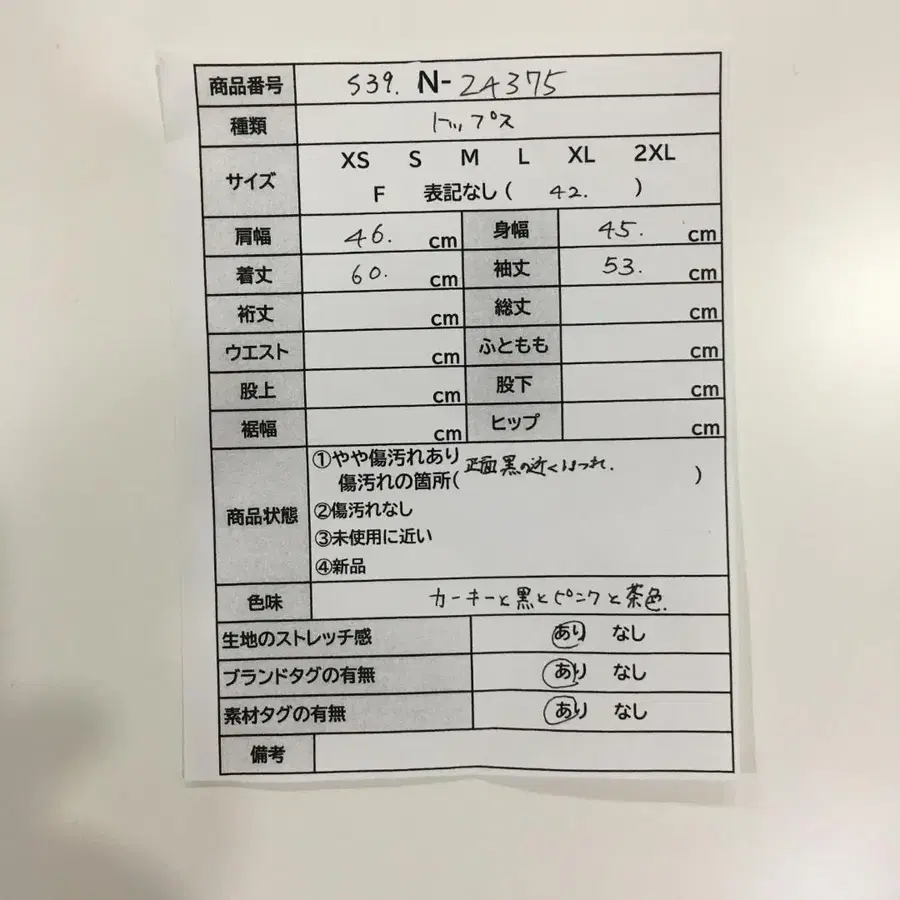 商品番号 S39. N-24375
種類 トップス
サイズ XS S M L XL 2XL
F 表記なし ( 42. )
肩幅 46. cm 身幅 45. cm
着丈 60. cm 袖丈 53. cm
裄丈 cm 総丈 cm
ウエスト cm ふともも cm
股上 cm 股下 cm
裾幅 cm ヒップ cm
商品状態 ①やや傷汚れあり
傷汚れの箇所( 正面黒の近くほつれ. )
②傷汚れなし
③未使用に近い
④新品
色味 カーキーと黒とピンクと茶色.
生地のストレッチ感 あり なし
ブランドタグの有無 あり なし
素材タグの有無 あり なし
備考